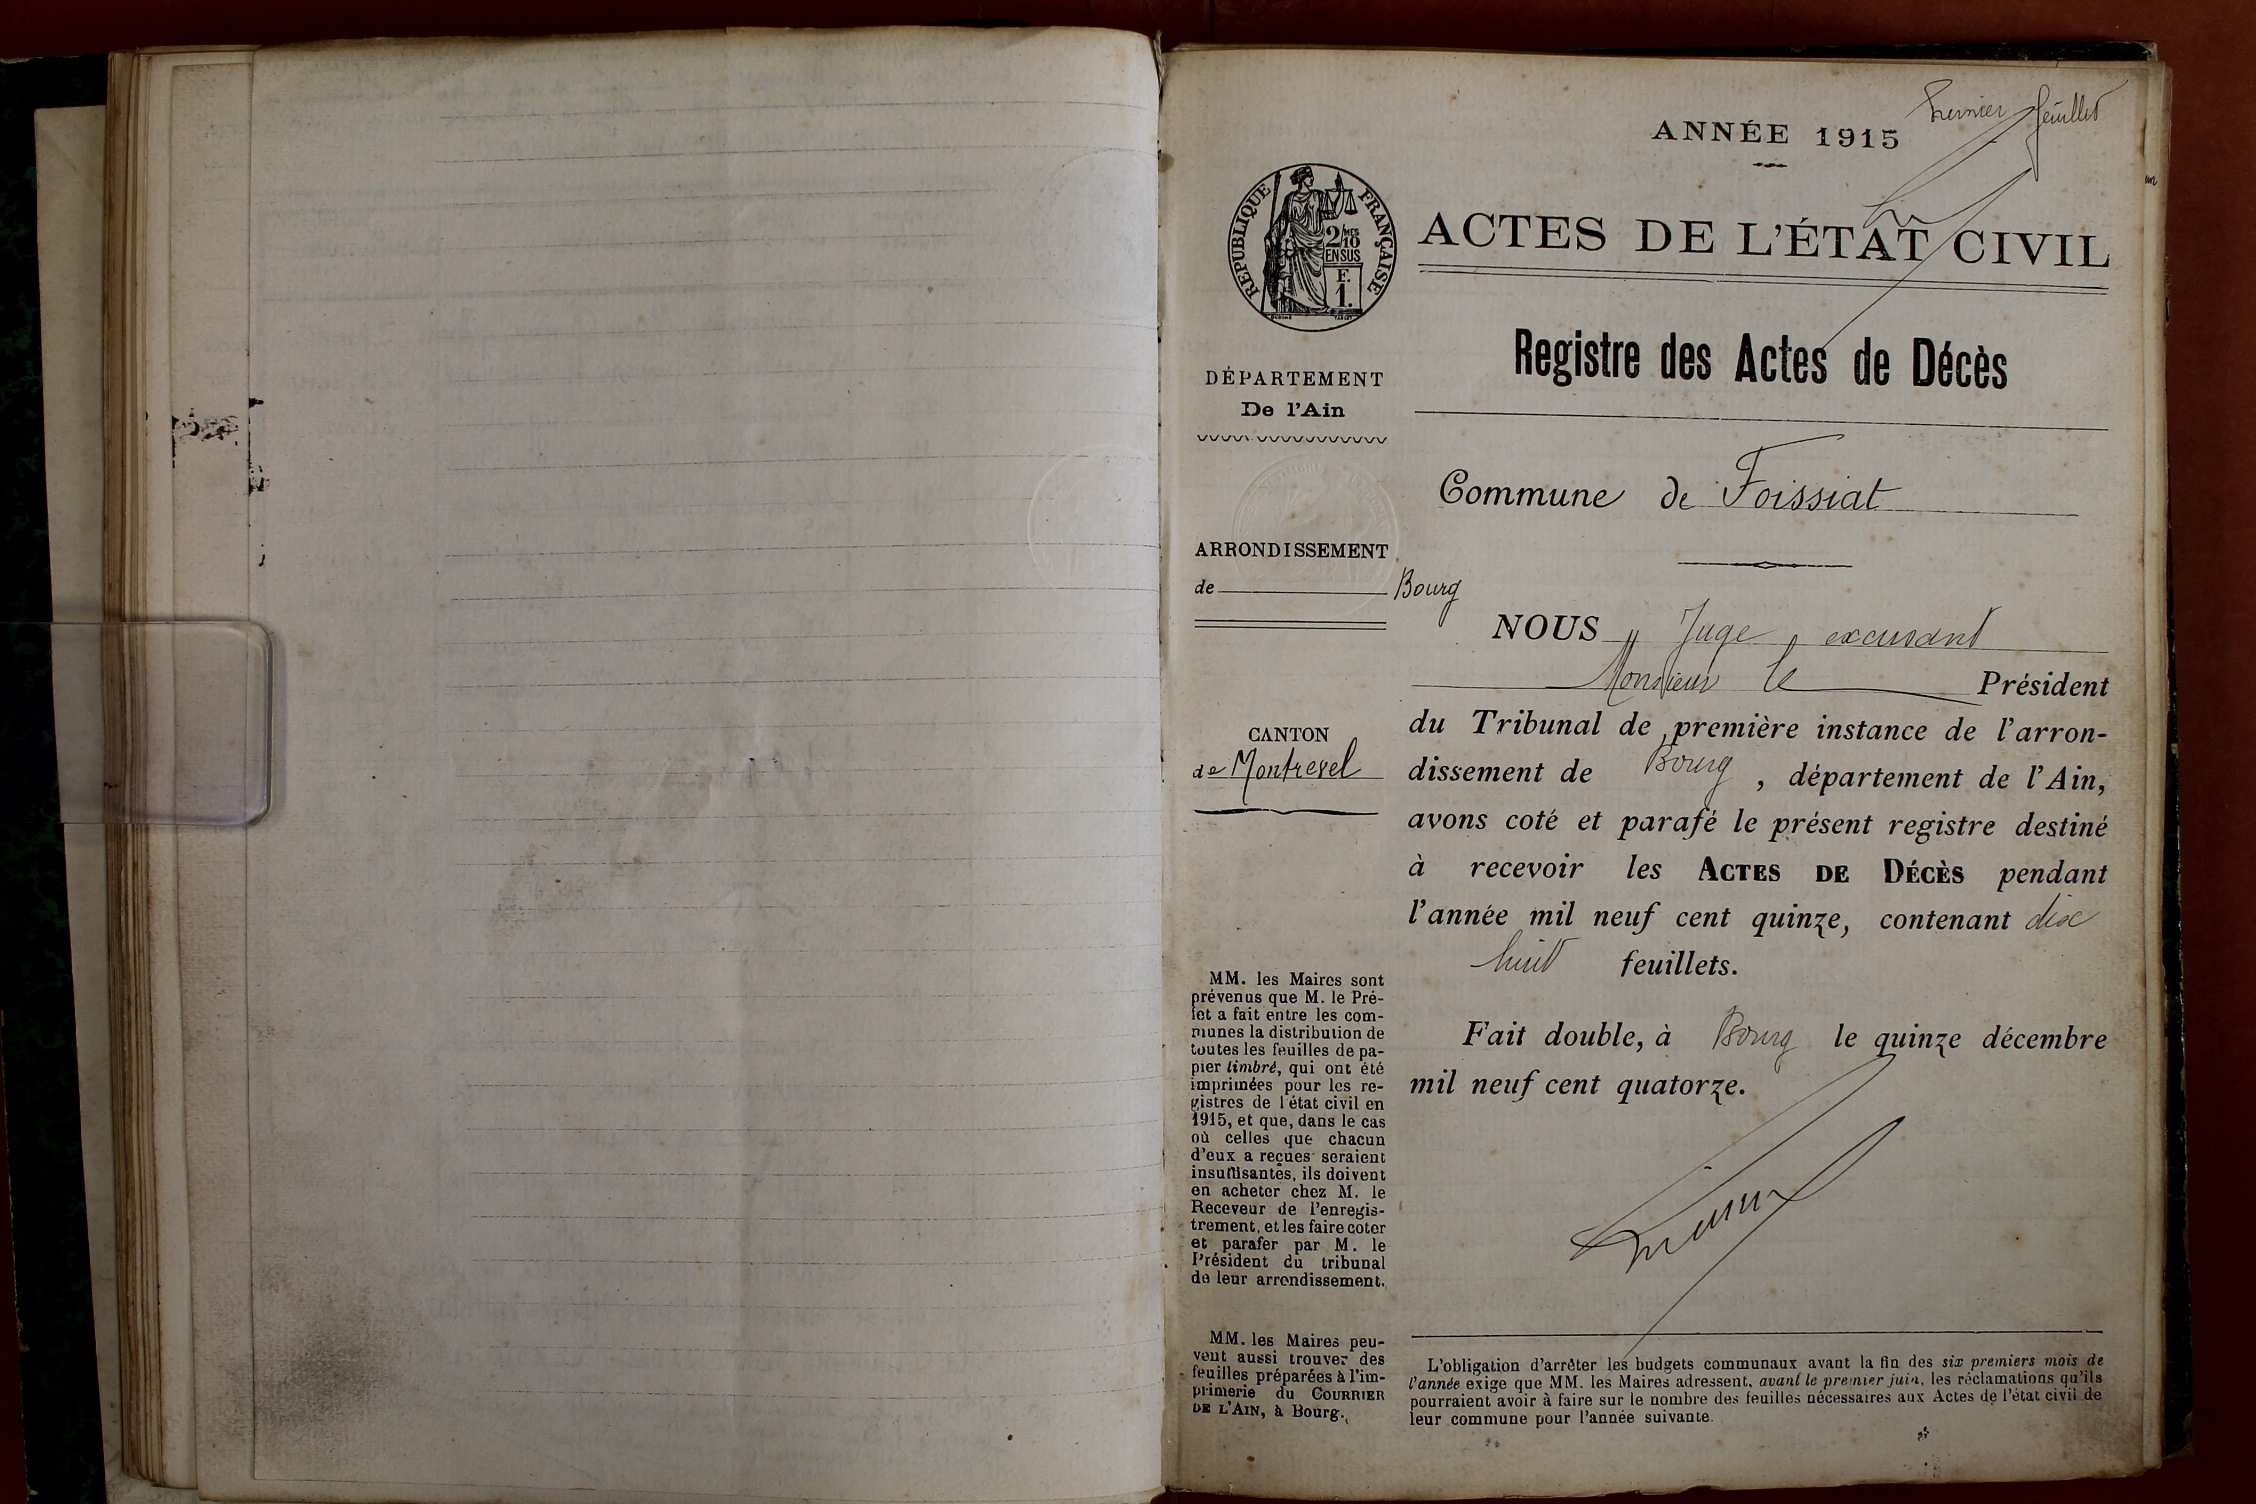 Premier feuillet
ANNÉE 1915
RÉPUBLIQUE FRANÇAISE
2/10 MES
EN SUS
F.
1.
ACTES DE L'ÉTAT CIVIL
Registre des Actes de Décès
DÉPARTEMENT
De l'Ain
Commune de Foissiat
ARRONDISSEMENT
de Bourg
CANTON
de Montrevel
NOUS Juge excusant
Monsieur le Président
du Tribunal de première instance de l'arron-
dissement de Bourg, département de l'Ain,
avons coté et parafé le présent registre destiné
à recevoir les ACTES DE DÉCÈS pendant
l'année mil neuf cent quinze, contenant dix
huit feuillets.
Fait double, à Bourg le quinze décembre
mil neuf cent quatorze.
MM. les Maires sont
prévenus que M. le Pré-
fet a fait entre les com-
munes la distribution de
toutes les feuilles de pa-
pier timbré, qui ont été
imprimées pour les re-
gistres de l'état civil en
1915, et que, dans le cas
où celles que chacun
d'eux a reçues seraient
insuffisantes, ils doivent
en acheter chez M. le
Receveur de l'enregis-
trement, et les faire coter
et parafer par M. le
Président du tribunal
de leur arrondissement.
MM. les Maires peu-
vent aussi trouver des
feuilles préparées à l'im-
primerie du COURRIER
DE L'AIN, à Bourg.
L'obligation d'arrêter les budgets communaux avant la fin des six premiers mois de
l'année exige que MM. les Maires adressent, avant le premier juin, les réclamations qu'ils
pourraient avoir à faire sur le nombre des feuilles nécessaires aux Actes de l'état civil de
leur commune pour l'année suivante.